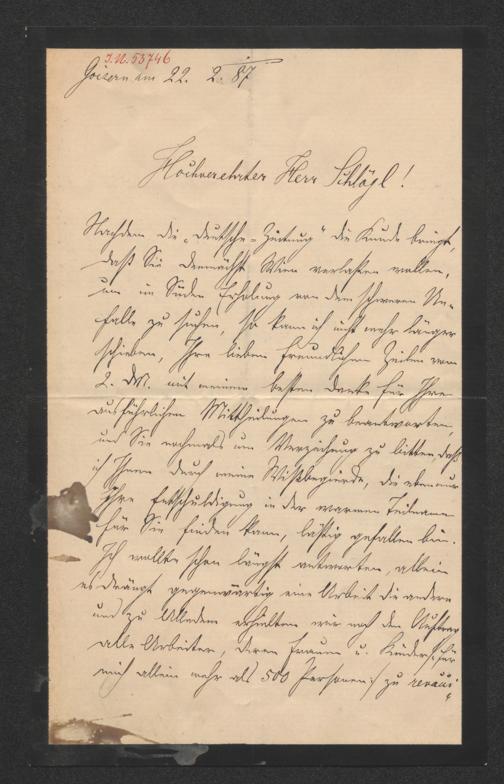 I.N. 53746
Goisern am 22. 2. 87
Hochverehrter Herr Schlögl!
Nachdem die „Deutsche-Zeitung" die Kunde bringt,
daß Sie demnächst Wien verlassen wollen,
um im Süden Erholung von dem schweren Un-
falle zu suchen, so kann ich nicht mehr länger
schieben, Ihre lieben freundlichen Zeilen vom
2. d. M. mit meinem besten Danke für Ihre
ausführlichen Mittheilungen zu beantworten
und Sie nochmals um Verzeihung zu bitten, daß
ich Ihnen durch meine Wißbegierde, die eben nur
Ihre Entschuldigung in der warmen Teilname
für Sie finden kann, lästig gefallen bin.
Ich wollte schon längst antworten, allein
es drängt gegenwärtig eine Arbeit die andere
und zu Alldem erhielten wir noch den Auftrag
alle Arbeiter, deren Frauen u. Kinder (für
mich allein mehr als 500 Personen) zu revacci-